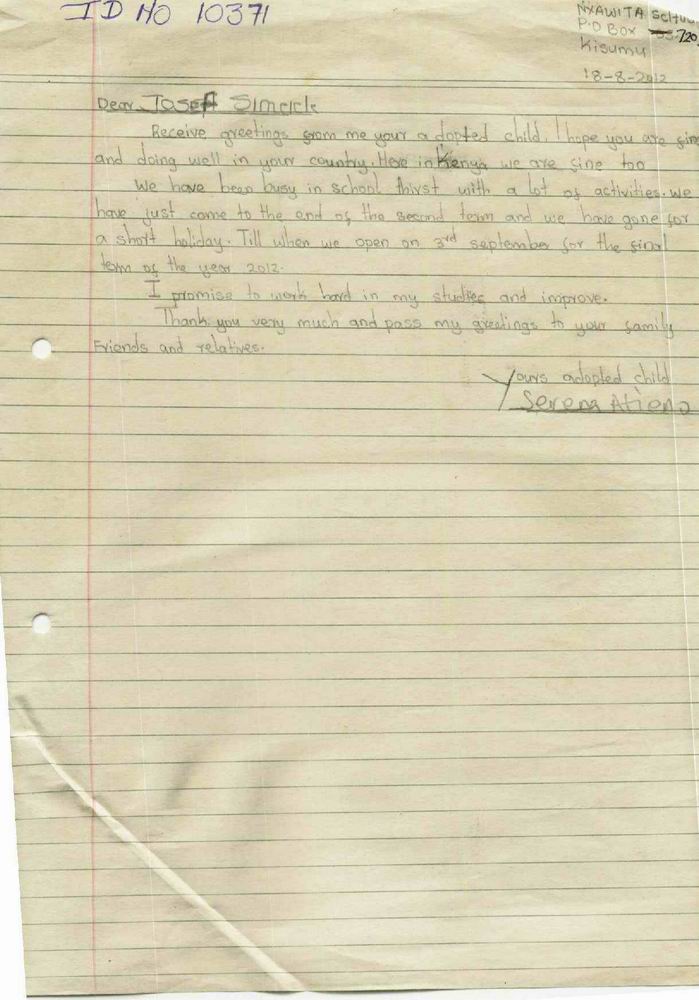 ID NO 10371
NYAWITA
P.O BOX 720
Kisumu
18-8-2012
Dear Josef Simcick
Receive greetings from me your adopted child. I hope you are fine
and doing well in your country. Here in Kenya we are fine too
We have been busy in school thirst with a lot of activities. we
have just come to the end of the second term and we have gone for
a short holiday. Till when we open on 3rd september for the final
term of the year 2012.
I promise to work hard in my studies and improve.
Thank you very much and pass my greetings to your family
Friends and relatives.
Yours adopted child
Serena Atieno